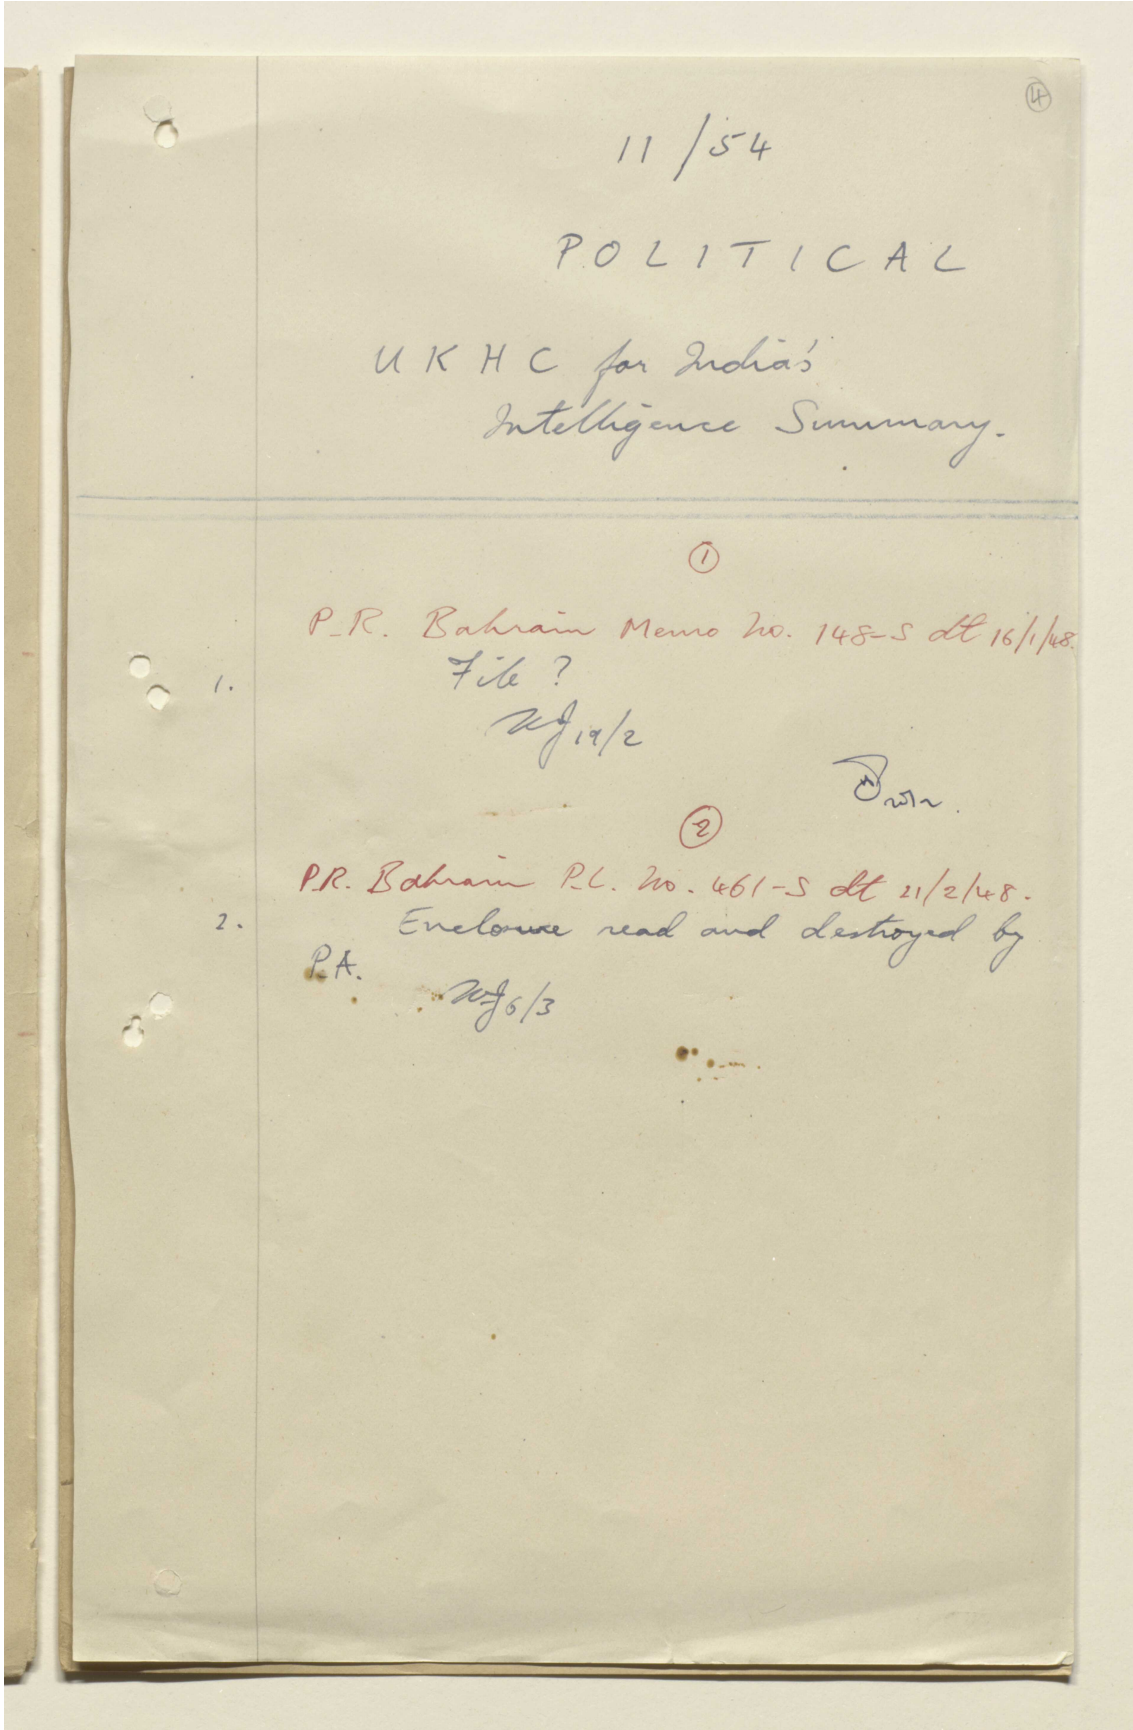 4
11/54
POLITICAL
UKHC for India's
Intelligence Summary.
1
P.R. Bahrain Memo No. 148-S dt 16/1/48.
1. File ?
WJ 19/2
2
P.R. Bahrain P.L. No. 461-S dt 21/2/48.
2. Enclosure read and destroyed by
P.A.
WJ 6/3